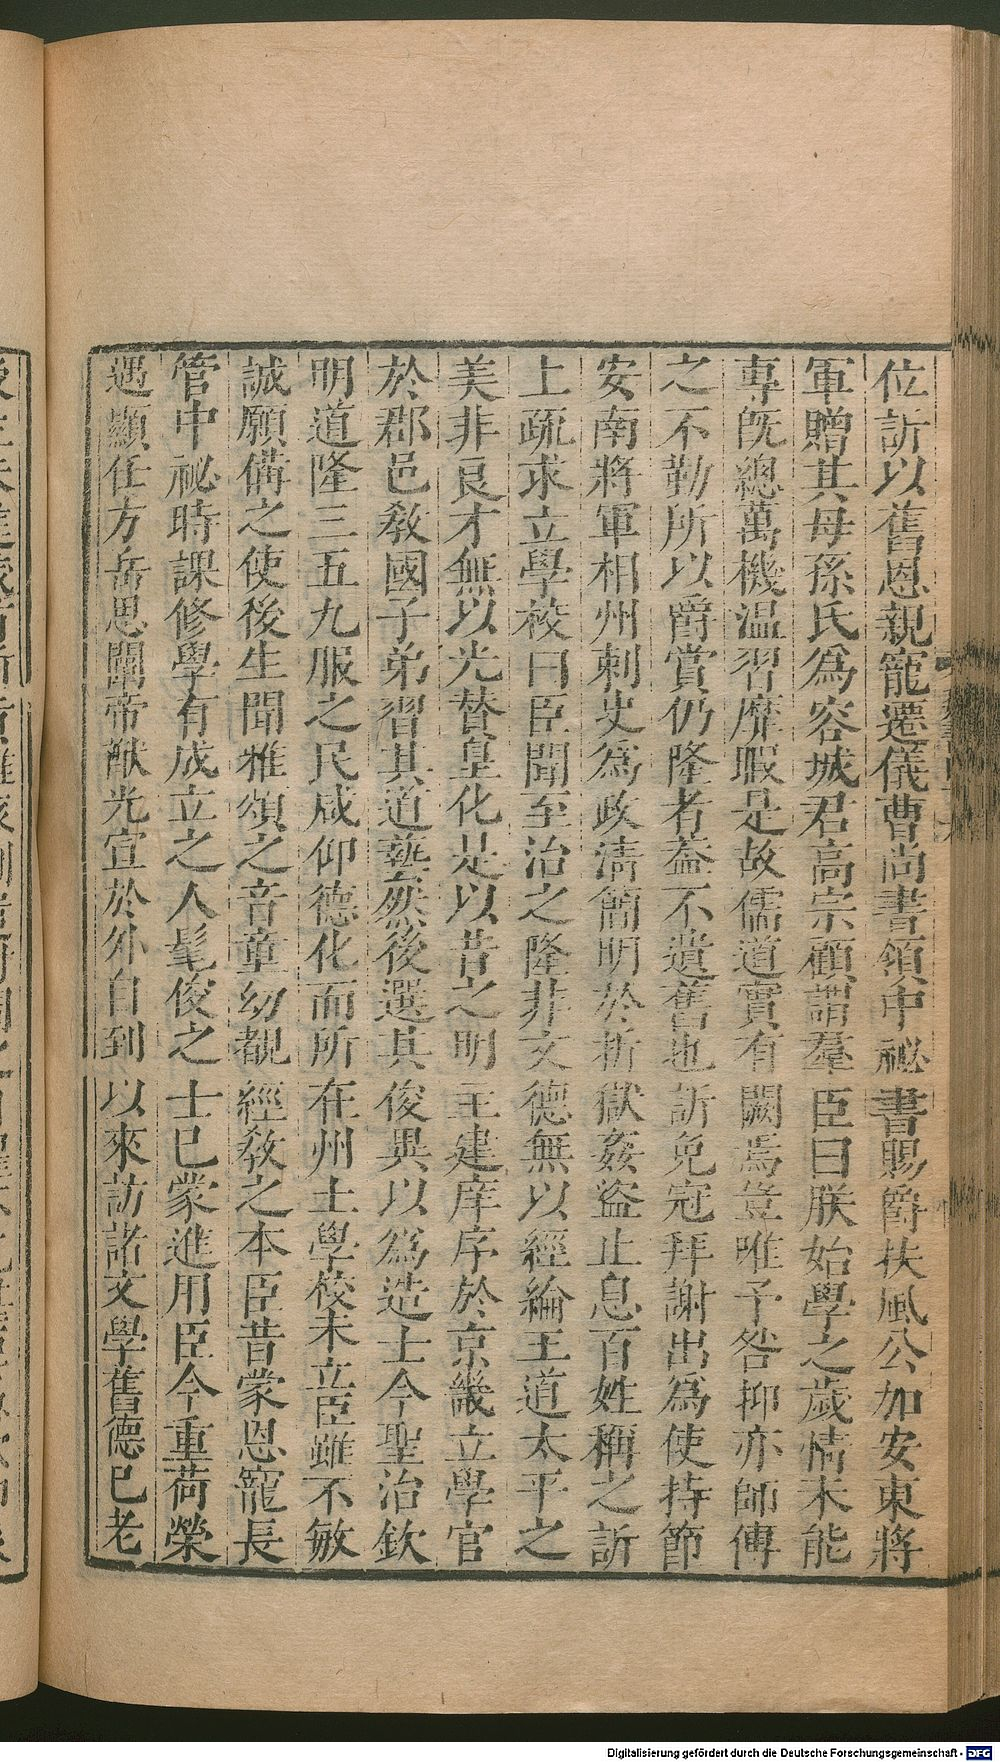 位訢以舊恩親寵遷儀曹尚書領中祕書賜爵扶風公加安東將
軍贈其母孫氏爲容城君高宗顧謂羣臣曰朕始學之歲情未能
專旣總萬機温習靡暇是故儒道實有闕焉豈唯予咎抑亦師傅
之不勤所以爵賞仍隆者葢不遺舊也訢免冠拜謝出爲使持節
安南將軍相州刺史爲政清簡明於析獄姦盜止息百姓稱之訢
上疏求立學校曰臣聞至治之隆非文德無以經綸王道太平之
美非良才無以光賛皇化是以昔之明王建庠序於京畿立學官
於郡邑敎國子弟習其道藝然後選其俊異以爲造士今聖治欽
明道隆三五九服之民咸仰德化而所在州土學校未立臣雖不敏
誠願備之使後生聞雅頌之音童幼覩經敎之本臣昔蒙恩寵長
管中祕時課修學有成立之人髦俊之士已蒙進用臣今重荷榮
遇顯任方岳思闡帝猷光宣於外自到以來訪諸文學舊德已老
Digitalisierung gefördert durch die Deutsche Forschungsgemeinschaft - DFG